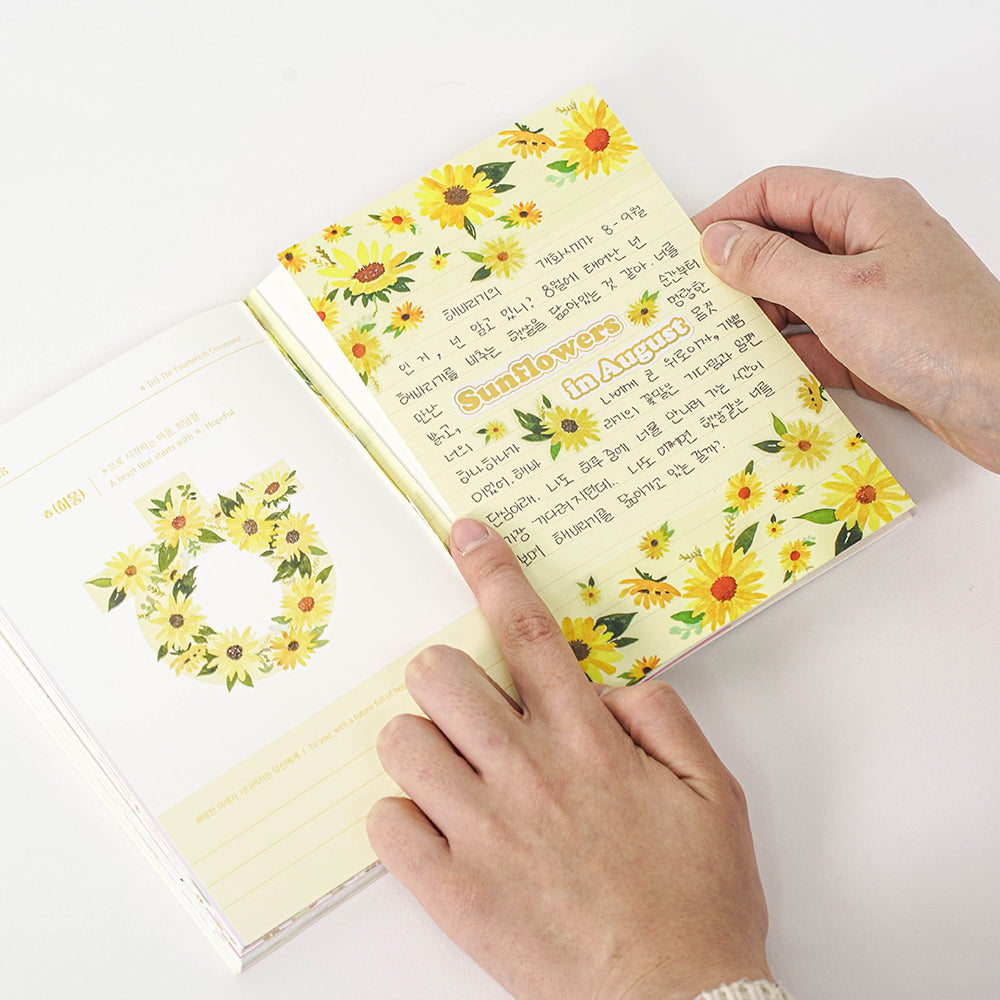 ㅎ [H] The Fourteenth Consonant
ㅎ (히읗)
ㅎ으로 시작하는 마음, 희망찬
A heart that starts with ㅎ, Hopeful
ㅎ
희망찬 미래가 기다려지는 당신에게 / To you, with a future full of hope
해바라기의 개화시기가 8-9월
인 거, 넌 알고 있니? 8월에 태어난 넌
해바라기를 비추는 햇살을 닮아있는 것 같아. 너를
만난 순간부터
밝고, 명랑한
너의 몸짓
Sunflowers
in August
하나하나가 나에게 큰 위로이자, 기쁨
이었어. 해바라기의 꽃말은 기다림과 일편
단심이래. 나도 하루 중에 너를 만나러 가는 시간이
가장 기다려지던데.. 나도 어쩌면 햇살같은 너를
보며 해바라기를 닮아가고 있는 걸까?